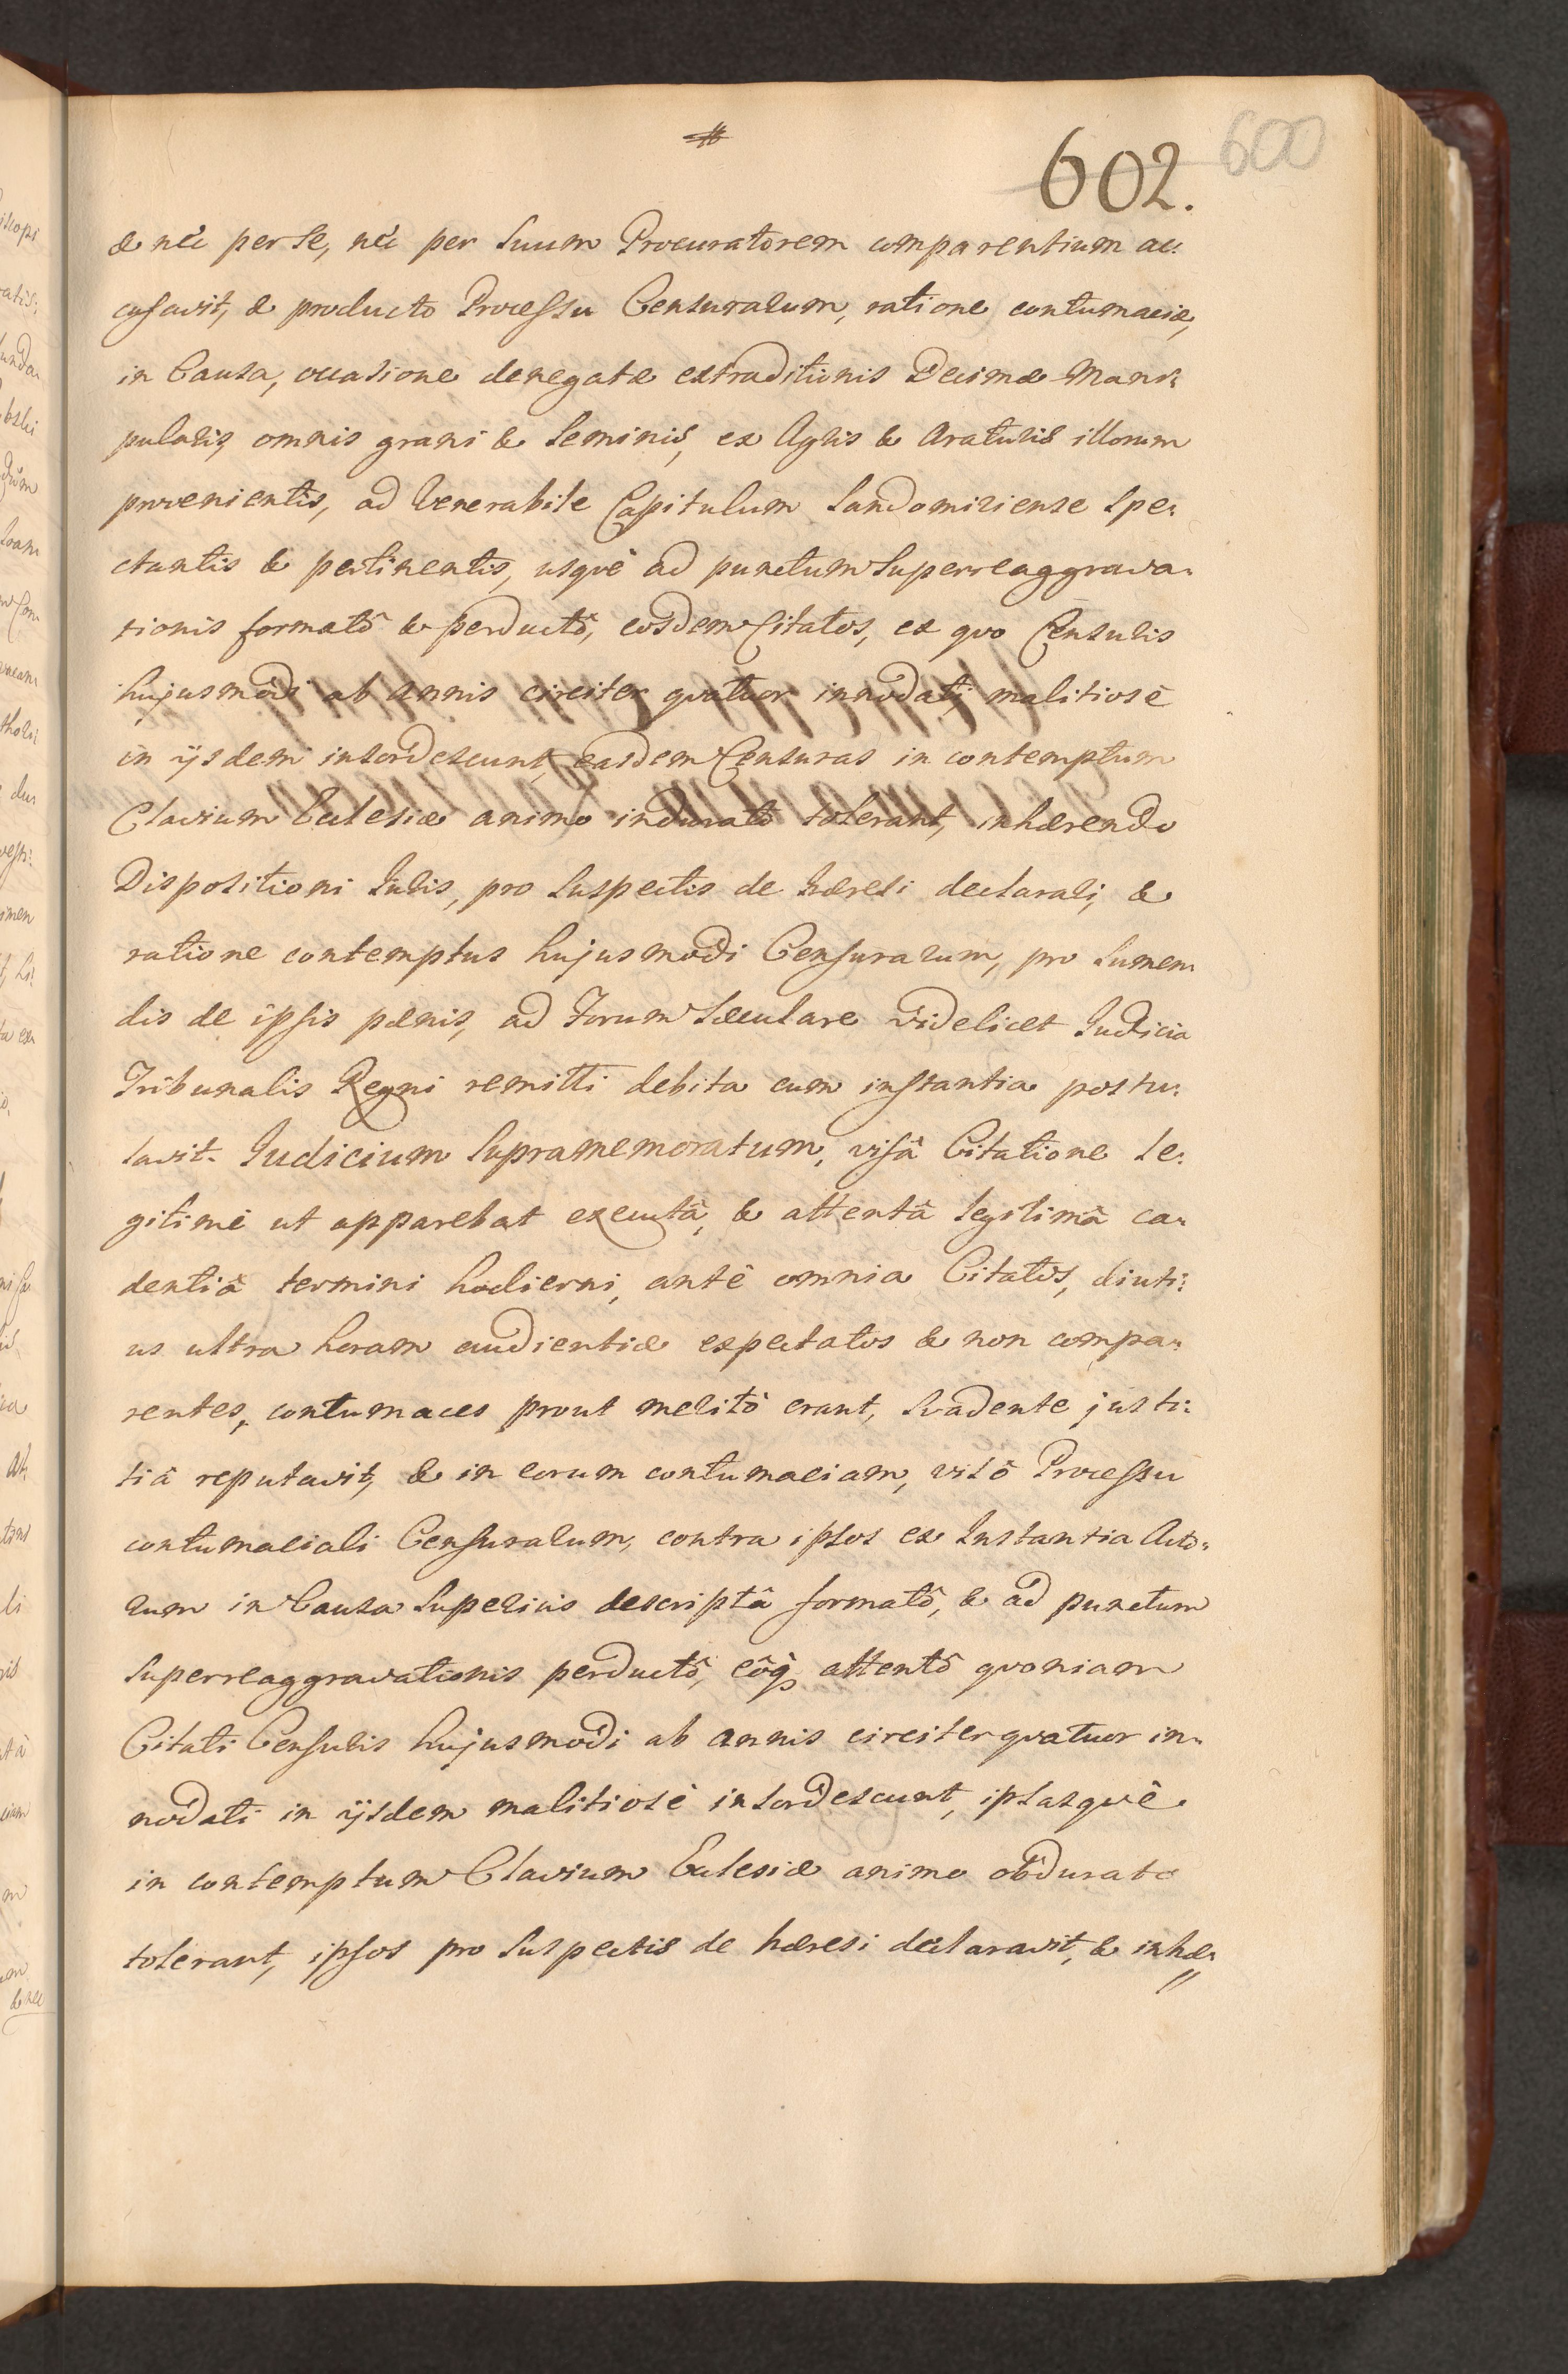 602. 600
& nec per se, nec per suum Procuratorem comparentium ac:
cusavit, & producto Processu Censurarum, ratione contumaciæ,
in Causa, occasione denegatæ extraditionis Decimæ Mani:
pularis, omnis grani & seminis, ex Agris & Araturis illorum
provenientis, ad Venerabile Capitulum Sandomiriense spe:
ctantis & pertinentis, usquè ad punctum superreaggrava:
tionis formatô & perductô, eosdem Citatos, ex quo Censuris
hujusmodi ab annis circiter quatuor innodati malitiosè
in ijsdem insordescunt, easdem Censuras in contemptum
Clavium Ecclesiæ animo indurato tolerant, inhærendo
Dispositioni Iuris, pro suspectis de hæresi declarari, &
ratione contemptus hujusmodi Censurarum, pro sumen
dis de ipsis pænis, ad Forum Sæculare videlicet Iudicia
Tribunalis Regni remitti debita cum instantia postu:
lavit. Iudicium supramemoratum, visâ Citatione le:
gitimè ut apparebat executâ, & attentâ legitimâ ca:
dentiâ termini hodierni, antè omnia Citatos, diuti:
us ultra horam audientiæ expectatos & non compa:
rentes, contumaces prout meritò erant, svadente justi:
tiâ reputavit, & in eorum contumaciam, visô Processu
contumaciali Censurarum, contra ipsos ex Instantia Acto:
rum in Causa superius descriptâ formatô, & ad punctum
superreaggravationis perductô, eôq; attentô quoniam
Citati Censuris hujusmodi ab annis circiter quatuor in:
nodati in ijsdem malitiosè insordescunt, ipsasquè
in contemptum Clavium Ecclesiæ animo obdurato
tolerant, ipsos pro suspectis de hæresi declaravit, & inhæ: